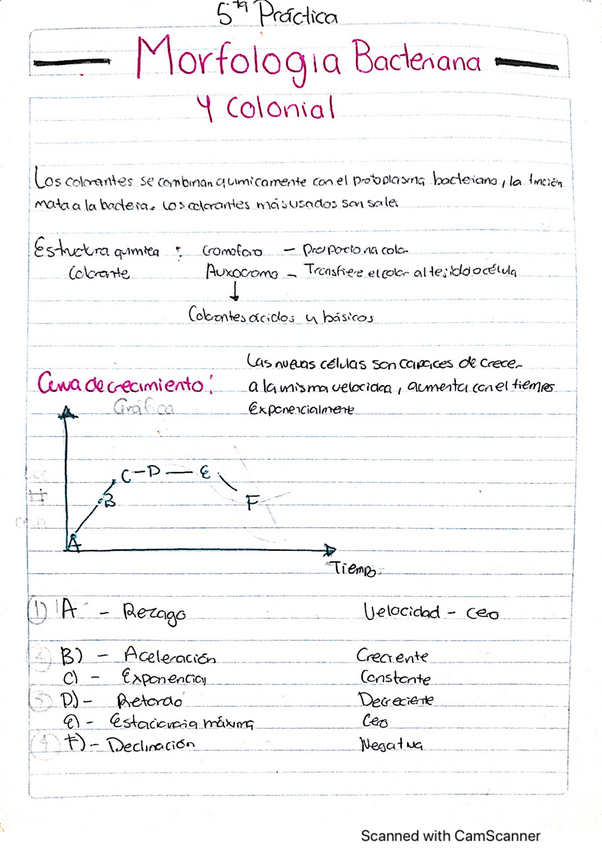 5ta Práctica
Morfología Bacteriana
y colonial
Los colorantes se combinan químicamente con el protoplasma bacteriano, la tinción
mata a la bacteria. Los colorantes más usados son sales
Estructura química : Cromóforo – Proporciona color
Colorante Auxocromo – Transfiere el color al tejido o célula
Colorantes ácidos y básicos
Las nuevas células son capaces de crecer
Curva de crecimiento: a la misma velocidad, aumenta con el tiempo
Gráfica Exponencialmente
C – D — E
B F
A
Tiempo
1 A – Rezago Velocidad – cero
B) – Aceleración Creciente
C) – Exponencial Constante
3 D) – Retardo Decreciente
E) – Estacionaria máxima Cero
4 F) – Declinación Negativa
Scanned with CamScanner